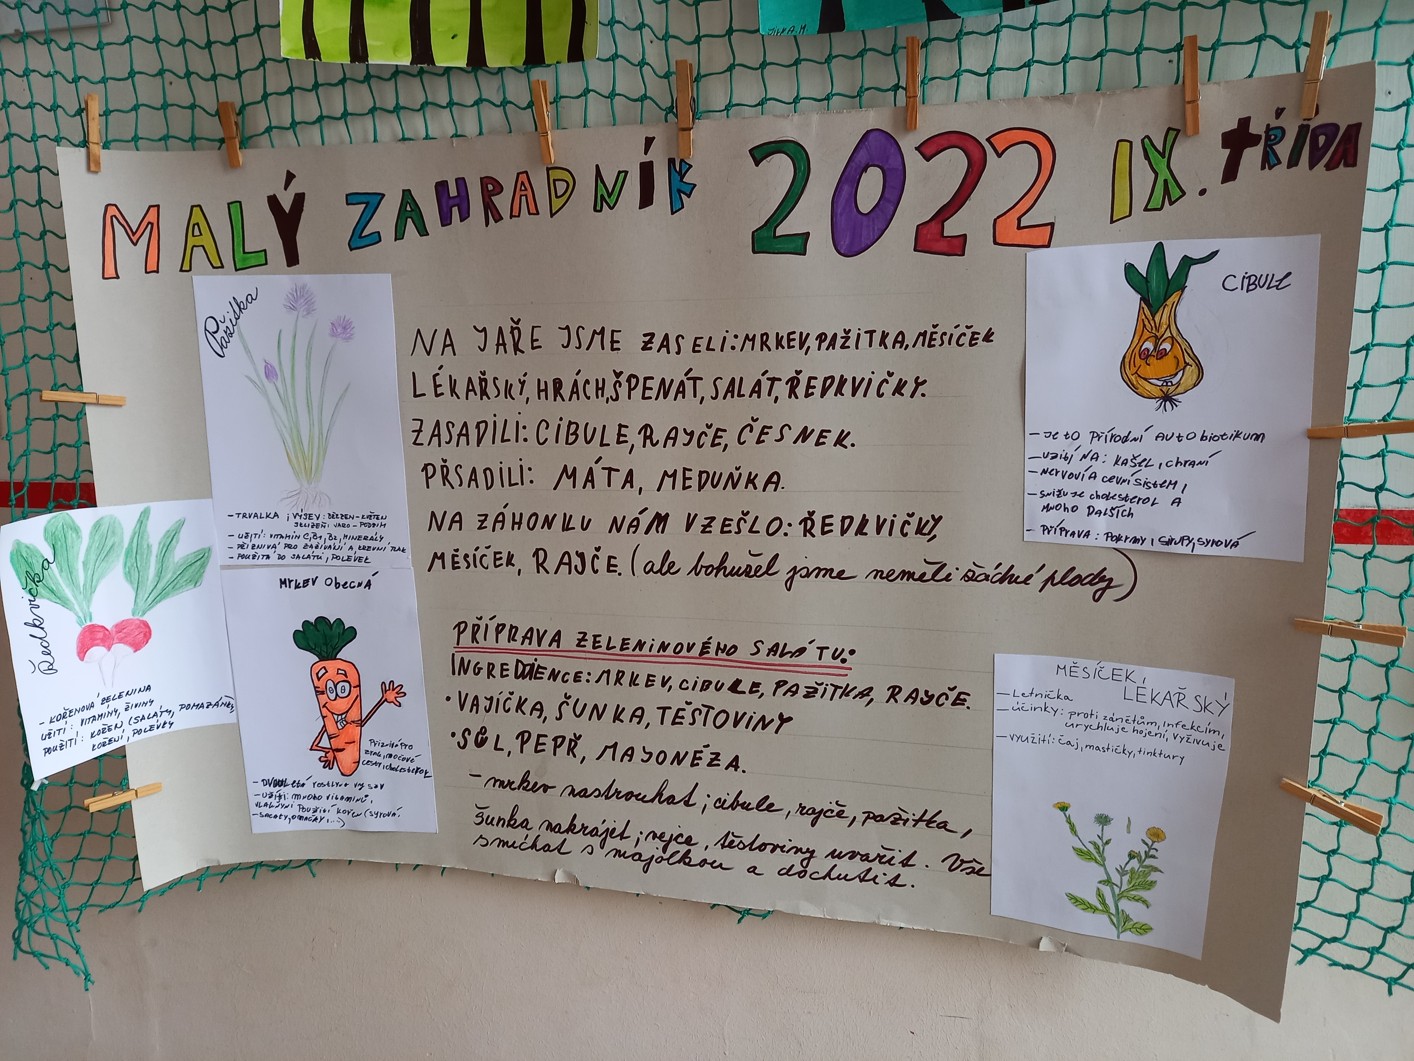 MALÝ ZAHRADNÍK 2022 IX. TŘÍDA
Pažitka
- TRVALKA ; VÝSEV: BŘEZEN-KVĚTEN
SKLIZEŇ: JARO - PODZIM
- UŽITÍ: VITAMÍN C, B1, B2, MINERÁLY
- PŘÍZNIVÁ PRO ZAŽÍVÁNÍ A KREVNÍ TLAK
- POUŽITÍ DO SALÁTŮ, POLÉVEK
Ředkvička
- KOŘENOVÁ ZELENINA
UŽITÍ: VITAMÍNY, ŽIVINY
POUŽITÍ: KOŘEN (SALÁTY, POMAZÁNKY,
KOŘENÍ, POLEVKY
MRKEV Obecná
Příznivá pro
zrak, močové
cesty, cholesterol
- Dvouletá rostlina
- užití: mnoho vitamínů,
použití kořen (syrová
- SALÁTY, OMÁČKY ,...)
NA JAŘE JSME ZASELI: MRKEV, PAŽITKA, MĚSÍČEK
LÉKAŘSKÝ, HRÁCH, ŠPENÁT, SALÁT, ŘEDKVIČKY.
ZASADILI: CIBULE, RAJČE, ČESNEK.
PŘSADILI: MÁTA, MEDUŇKA.
NA ZÁHONKU NÁM VZEŠLO: ŘEDKVIČKY,
MĚSÍČEK, RAJČE. (ale bohužel jsme neměli žádné plody)
PŘÍPRAVA ZELENINOVÉHO SALÁTU:
INGREDIENCE: MRKEV, CIBULE, PAŽITKA, RAJČE.
• VAJÍČKA, ŠUNKA, TĚSTOVINY
• SŮL, PEPŘ, MAYONÉZA.
- mrkev nastrouhat ; cibule, rajče, pažitka,
šunka nakrájet ; vejce, těstoviny uvařit. Vše
smíchat s majolkou a dochutit.
CIBULE
- Je to Přírodní AUTObiotikum
- UŽITÍ NA: KAŠEL, chrání
- NERVOVÍ A CEVNÍ SISTÉM,
- Snižuje cholesterol A
MNOHO DALŠÍCH
- PŘÍPRAVA: POKRMY, SIRUPY, SYROVÁ
MĚSÍČEK,
LÉKAŘSKÝ
- Letnička
- účinky: proti zánětům, infekcím,
urychluje hojení, vyživuje
- využití: čaj, mastičky, tinktury